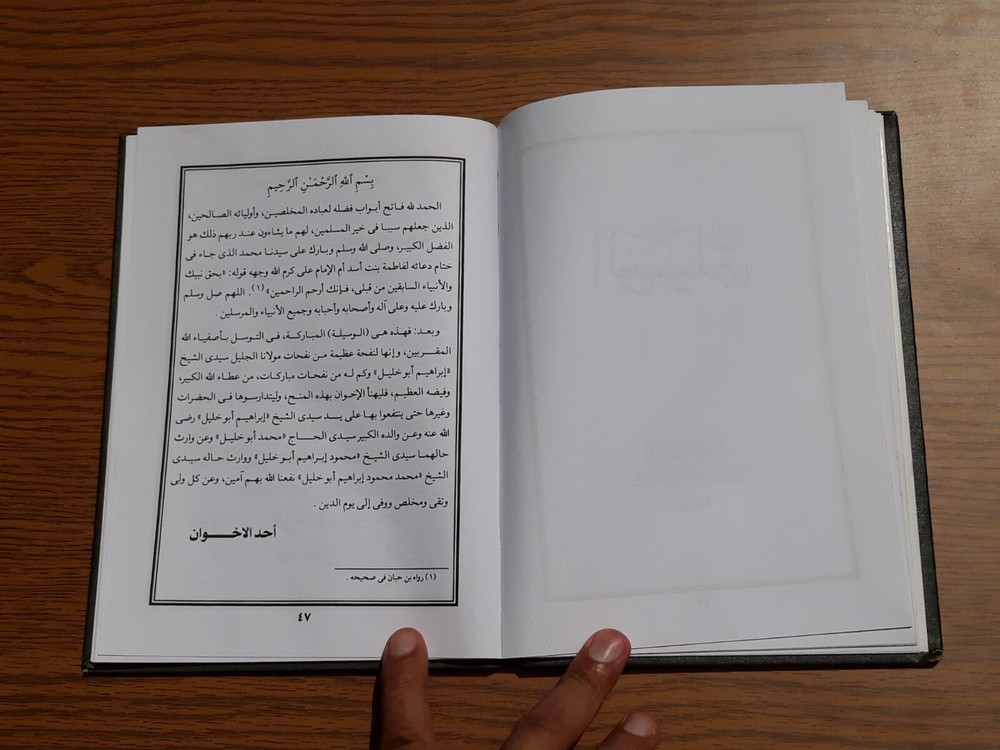 بِسْمِ ٱللَّهِ ٱلرَّحْمَـٰنِ ٱلرَّحِيمِ
الحمد لله فاتح أبواب فضله لعباده المخلصين، وأوليائه الصالحين،
الذين جعلهم سببا فى خير المسلمين، لهم ما يشاءون عند ربهم ذلك هو
الفضل الكبير، وصلى الله وسلم وبارك على سيدنا محمد الذى جاء فى
ختام دعائه لفاطمة بنت أسد أم الإمام على كرم الله وجهه قوله: «بحق نبيك
والأنبياء السابقين من قبلى، فإنك أرحم الراحمين» (١). اللهم صل وسلم
وبارك عليه وعلى آله وأصحابه وأحبابه وجميع الأنبياء والمرسلين .
وبعد: فهذه هى (الوسيلة) المباركة، فى التوسل بأصفياء الله
المقربين، وإنها لنفحة عظيمة من نفحات مولانا الجليل سيدى الشيخ
«إبراهيم أبو خليل» وكم له من نفحات مباركات، من عطاء الله الكبير،
وفيضه العظيم، فليهنأ الإخوان بهذه المنح، وليتدارسوها فى الحضرات
وغيرها حتى ينتفعوا بها على يد سيدى الشيخ «إبراهيم أبو خليل» رضى
الله عنه وعن والده الكبير سيدى الحاج «محمد أبو خليل» وعن وارث
حالهما سيدى الشيخ «محمود إبراهيم أبو خليل» ووارث حاله سيدى
الشيخ «محمد محمود إبراهيم أبو خليل» نفعنا الله بهم آمين، وعن كل ولى
وتقى ومخلص ووفى إلى يوم الدين .
أحد الاخوان
(١) رواه بن حبان فى صحيحه .
٤٧